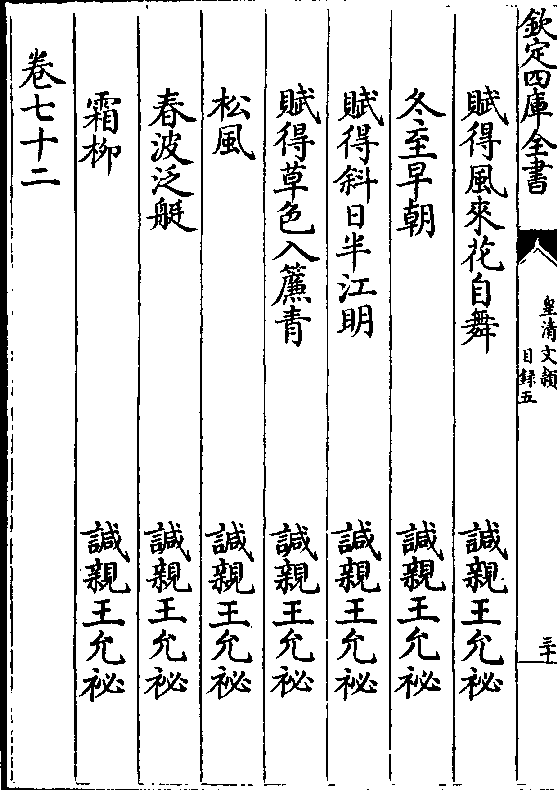 欽定四庫全書
皇清文頴
目録五
三十
賦得風來花自舞 諴親王允祕
冬至早朝 諴親王允祕
賦得斜日半江明 諴親王允祕
賦得草色入簾青 諴親王允祕
松風 諴親王允祕
春波泛艇 諴親王允祕
霜柳 諴親王允祕
卷七十二